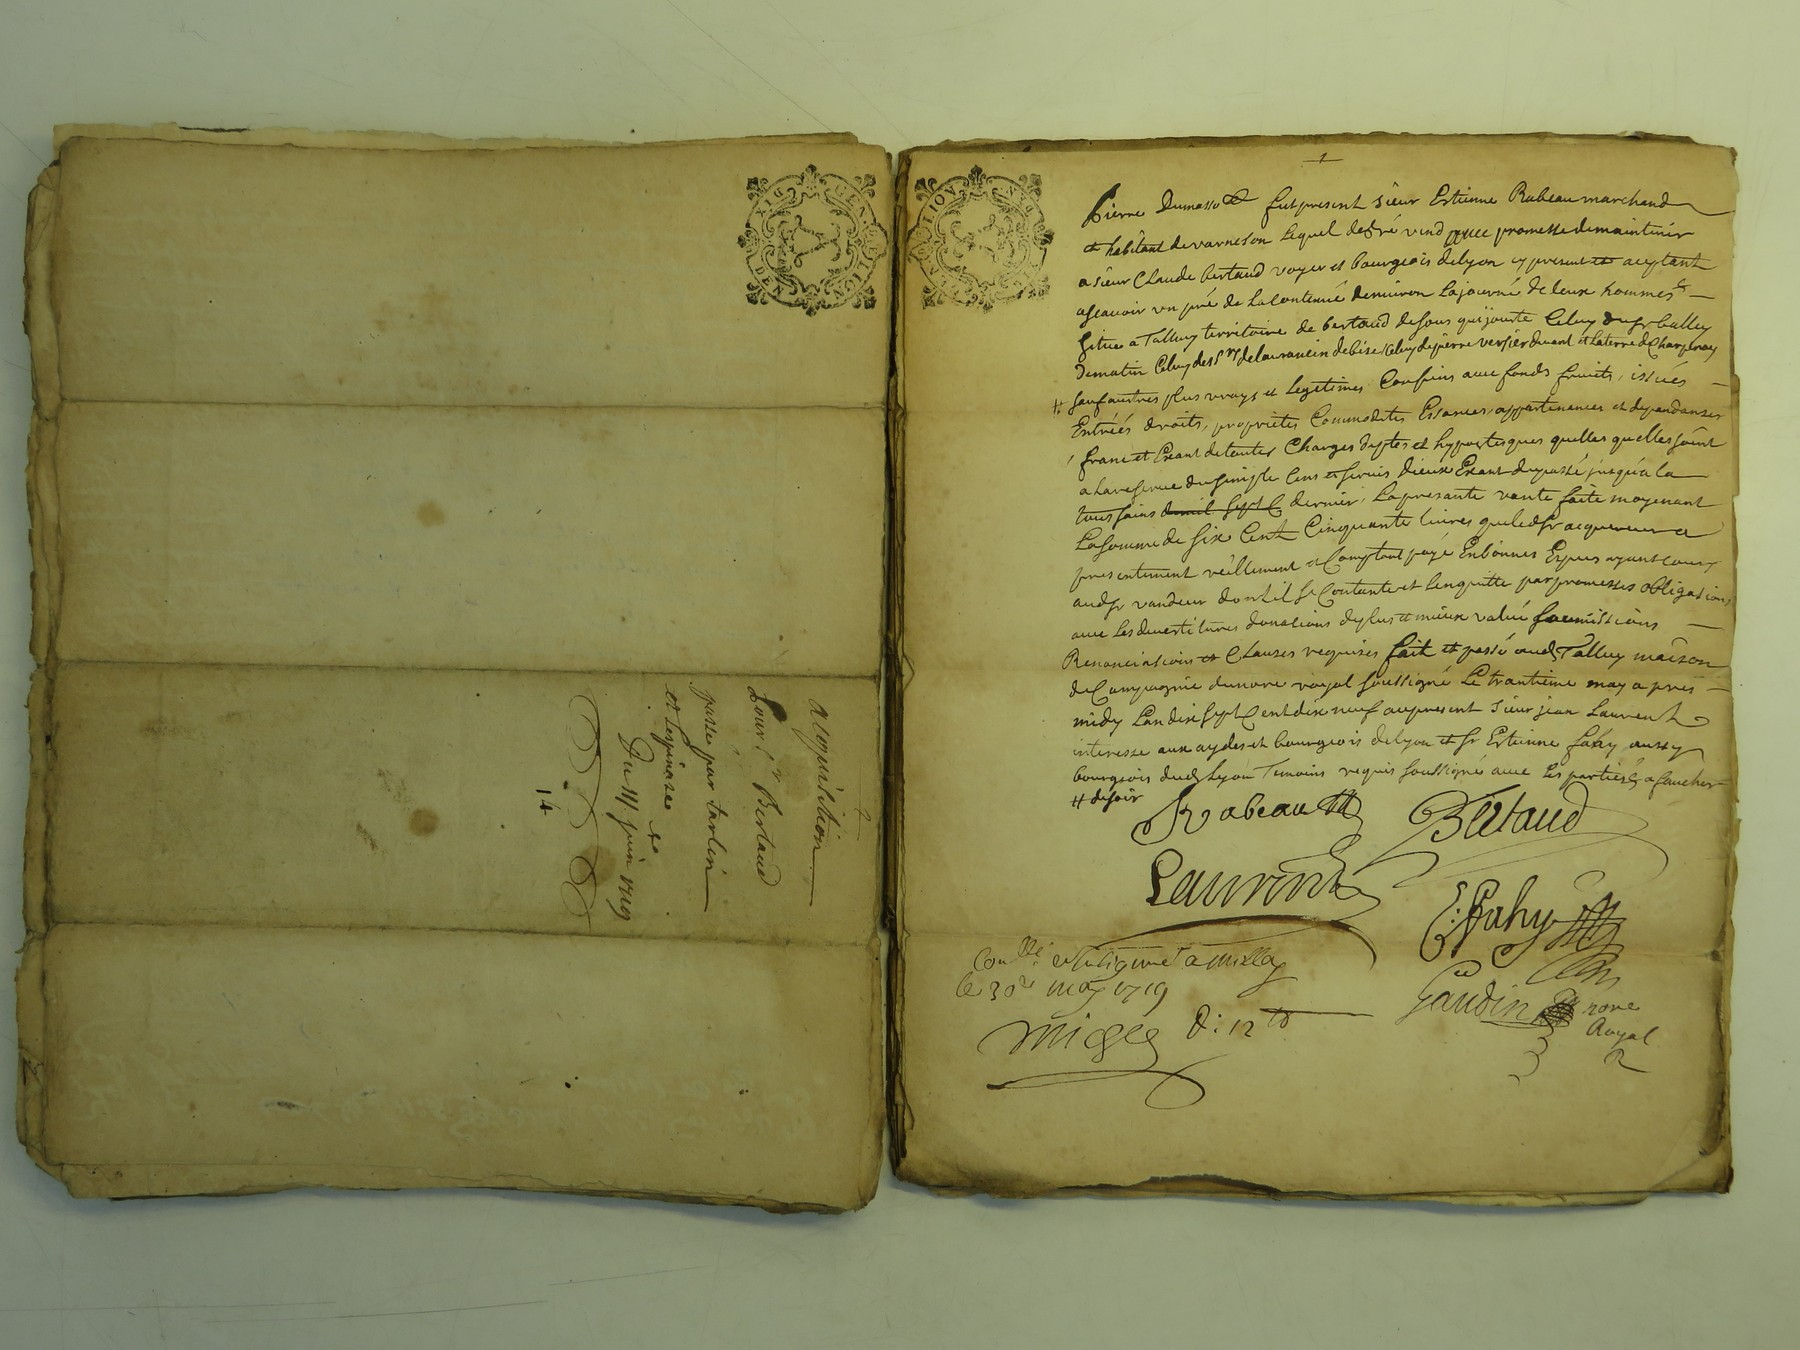 acquisition
Pour Sr Bertaud
passé par tarlin
et Lespinase
Du 11 juin 1719
14
1
Pierre Dumas fut present sieur Estienne Rabeau marchand
et habitant de lequel de gré vend avec promesse de maintenir
a sieur Claude bertaud voyer et bourgeois de lyon cy present et aceptant
asçavoir un pré de la contenue denviron la journé de deux hommes
situé a Talluy territoire de bertaud desous qui jouxte Celuy du Sr balley
de matin Celuy des Srs de de bise Celuy de pierre versier du vant et la terre de
sauf autres plus vrays et legitimes Confins avec fonds fruits, issuës
Entrées droits, proprietes Commodites Essances appartenances et dependanses
franc et Exant de toutes Charges deptes et hypoteques quelles quelles soint
a la reserve du simple Cens et servis dieux Exant du passé jusqu'a la
tous sains dernier, La presante vante faite moyenant
La somme de six Cent Cinquante livres que led Sr acquereur a
presentement reellement et Comptant payé En bonnes Espes ayant cours
aud Sr vandeur dont il se Contante et Len quitte par promesses obligations
avec Les devestitures donations de plus et mieux valué soumissions
Renonciations et Clauses requises fait et passé aud Talluy maison
de Campagne du nore royal soussigné Le trantieme may apres
midy Lan dix sept Cent dix neuf au present sieur jean Laurent
interesse aux aydes et bourgeois de lyon et Sr Estienne fahy aussy
bourgeois dud Lyon Temoins requis soussignés avec les parties
# de soir
Rabeau
Bertaud
Laurent
E: Fahy
Conllé
le 30e may 1719
R: 12
Gaudin nore
Royal